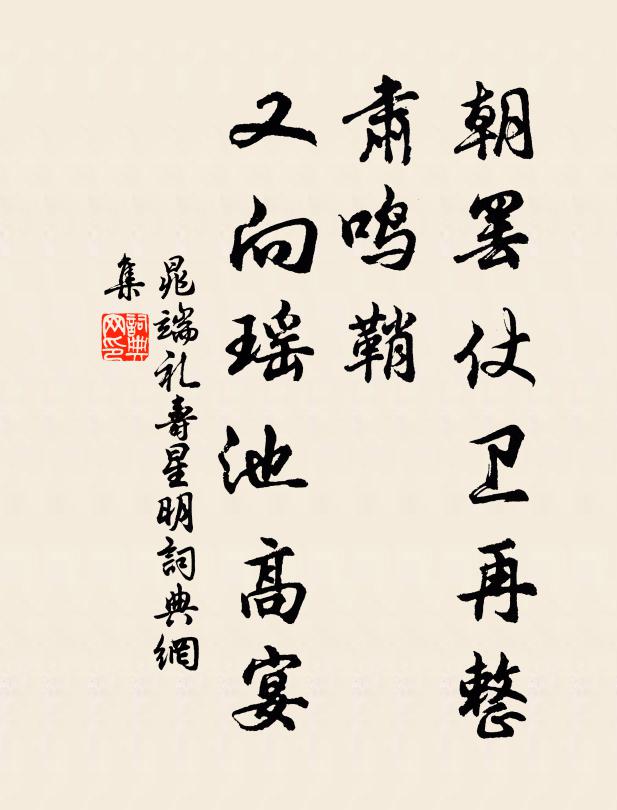 朝罢仗卫再整
肃鸣鞘
又向瑶池高宴
晁端礼寿星明詞典網
集
詞典
网印